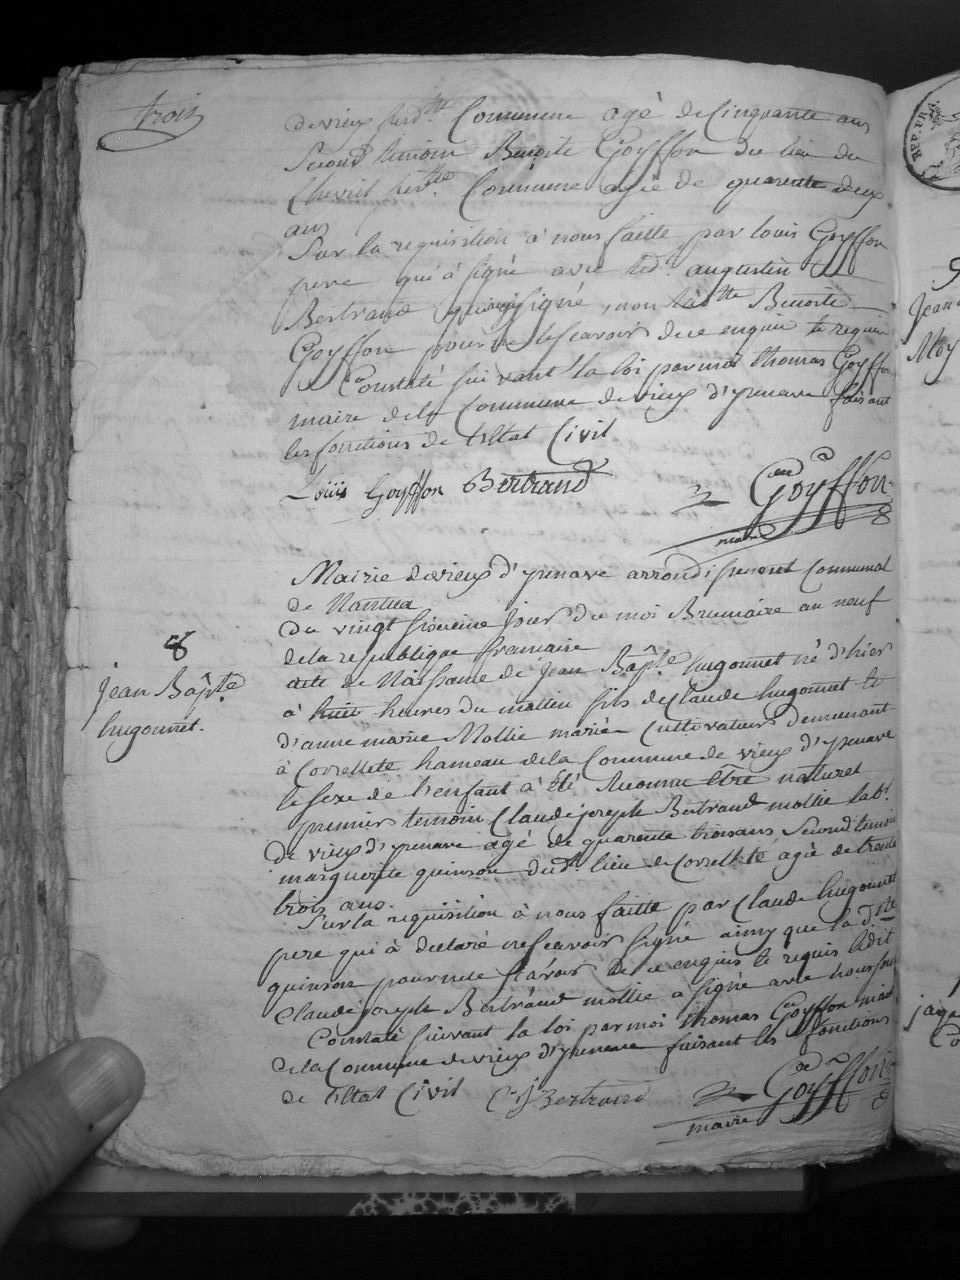 trois
de vieux susd.tte Commune agé de Cinquante ans
Second temoin Benoite Goyffon du lieu de
Chevril susd.tte Commune agée de quarente deux
ans
Sur la requisition à nous faitte par louis Goyffon
pere qui à signé avec led.t augustin
Bertrand signé, non ladtte Benoite
Goyffon pour ne scavoir de ce enquis te requis
Constaté suivant la loi par moi thomas Goyffon
maire de la Commune de vieux d'yzenave faisant
les fonctions de l'Etat Civil
Loüis Goyffon Bertrand Goyffon
maire
Mairie de vieux d'yzenave arrondissement Communal
de Nantua
Du vingt sixieme jour du moi Brumaire an neuf
de la republique francaise
8
jean Bapt.te
hugonnet.
acte de Naissance de jean Bapt.te hugonnet né d'hier
à huit heures du matten fils de Claude hugonnet te
d'anne marie Mollie mariés Cultivateurs demeurant
à Correllete hameau de la Commune de vieux d'yzenave
le sexe de l'enfant à été reconnu être naturel
premier temoin Claude joseph Bertrand mollie lab.r
De vieux d'yzenave agé de quarente trois ans Second temoin
marguerite quinson dud.t lieu de Correllete agée de trente
trois ans.
Sur la requisition à nous faitte par Claude hugonnet
pere qui à declaré ne scavoir signé ainsy que la d.tte
quinson pour ne scavoir de ce enquis te requis ledit
Claude joseph Bertrand mollie a signé avec nous
Constaté suivant la loi par moi thomas Goyffon maire
de la Commune de vieux d'yzenave faisant les fonctions
de l'Etat Civil C j Bertrand Goyffon
maire
REP. FRA.